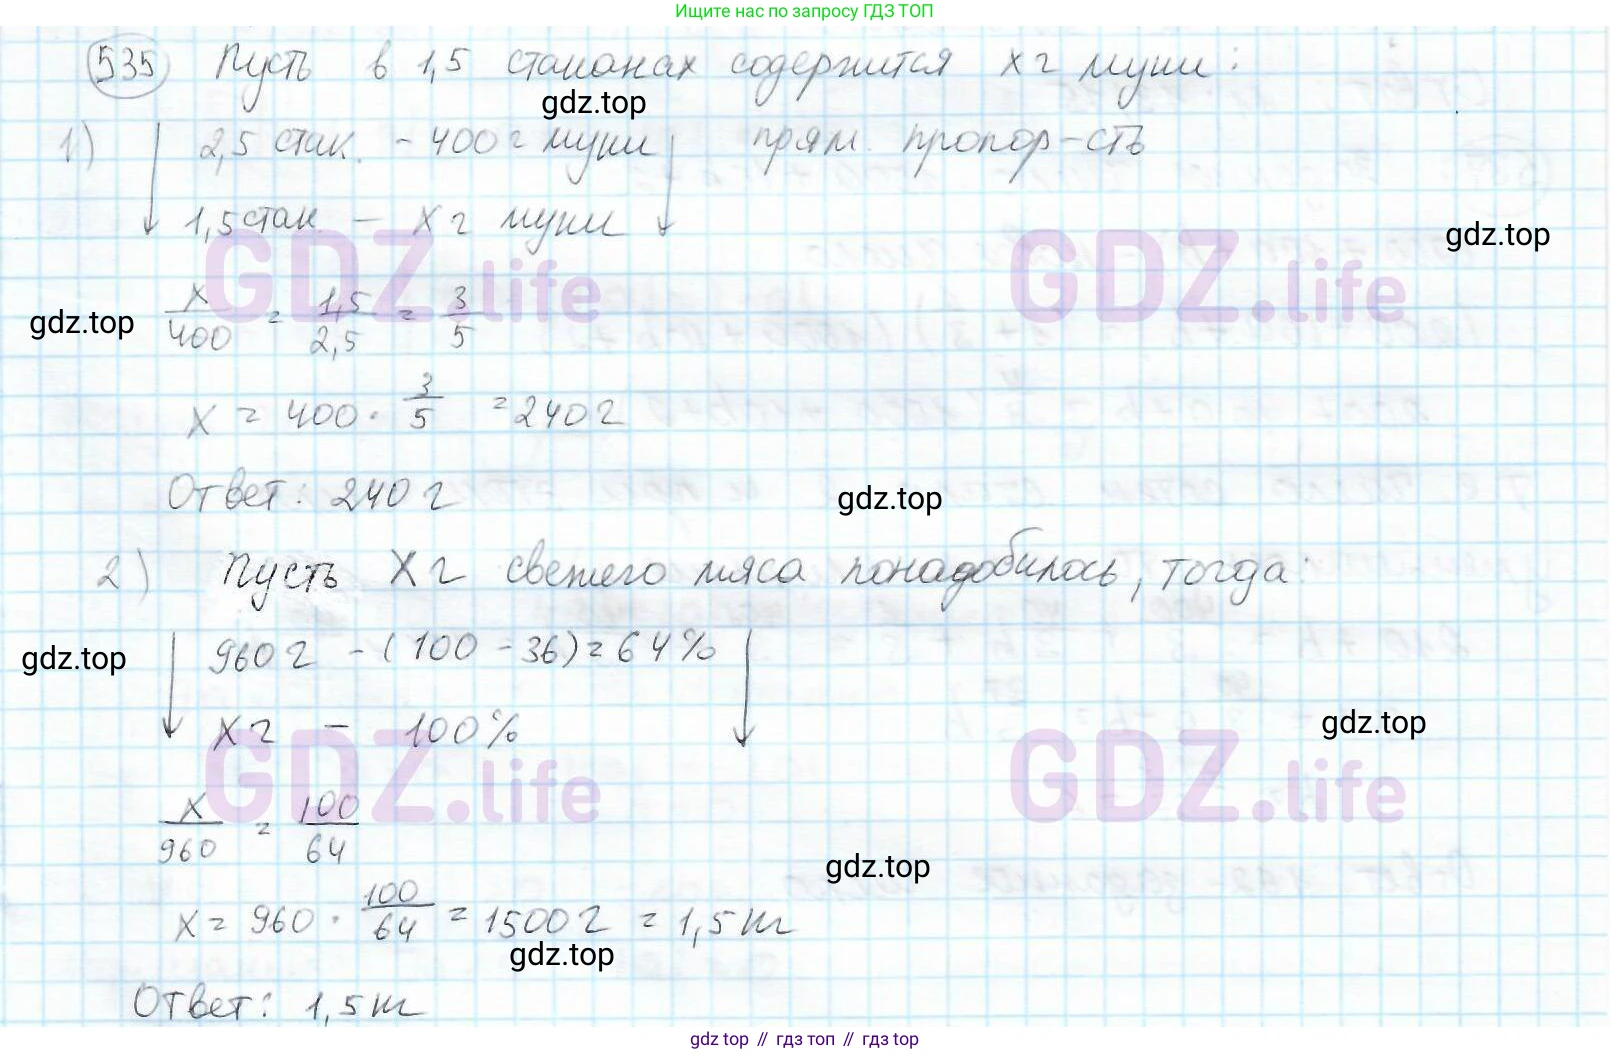 Ищите нас по запросу ГДЗ ТОП
535 Пусть в 1,5 стаканах содержится x г муки:
gdz.top
1) 2,5 стак. - 400 г муки прям. пропор-сть
1,5 стак - x г муки
gdz.top
GDZ.life GDZ.life
gdz.top
x/400 = 1,5/2,5 = 3/5
x = 400 · 3/5 = 240 г
Ответ: 240 г
gdz.top
2) Пусть x г свежего мяса понадобилось, тогда:
960 г - (100 - 36) = 64%
gdz.top
x г - 100%
gdz.top
GDZ.life GDZ.life
x/960 = 100/64
gdz.top
x = 960 · 100/64 = 1500 г = 1,5 кг
gdz.top
Ответ: 1,5 кг
gdz top // гдз топ // gdz top